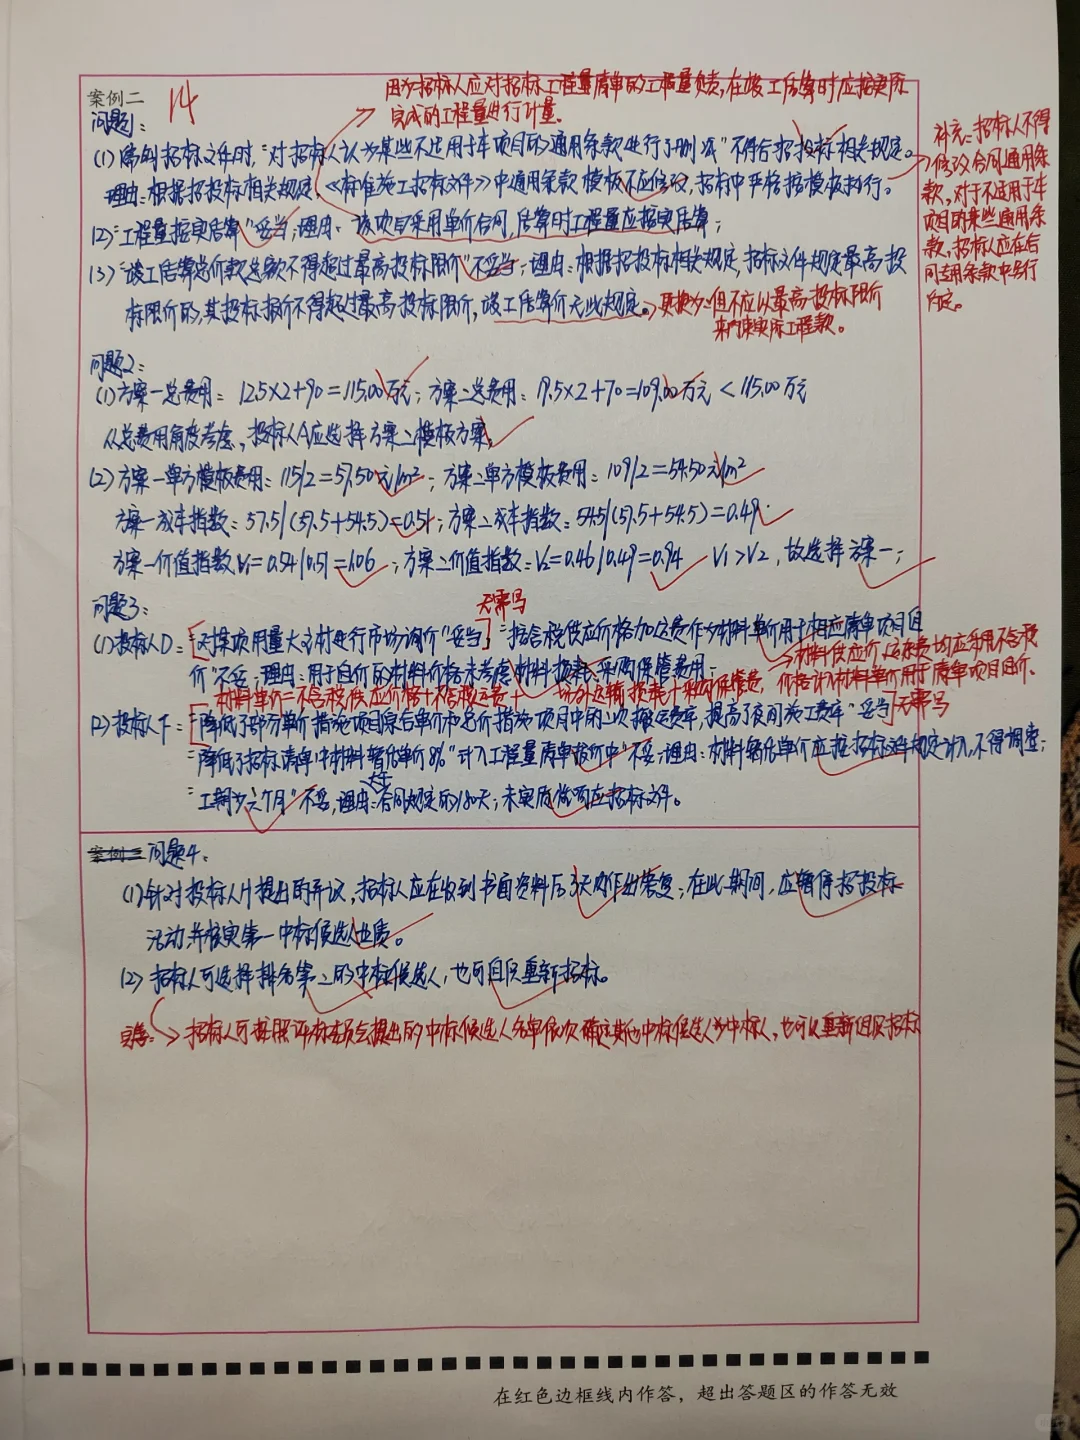 案例二
14
因为招标人应对招标工程量清单的工程量负责,在竣工结算时应按实际
完成的工程量进行计量。
问题1:
(1)编制招标文件时,"对招标人认为某些不适用于本项目的通用条款进行了删减"不符合招投标相关规定。
理由:根据招投标相关规定,《标准施工招标文件》中通用条款模板不应修改,招标中严格按模板执行。
补充:招标人不得
修改合同通用条
款,对于不适用于本
项目的某些通用条
款,招标人应在合
同专用条款中另行
约定。
(2)"工程量按实结算"妥当;理由:该项目采用单价合同,结算时工程量应按实结算;
(3)"竣工结算总价款总额不得超过最高投标限价"不妥当;理由:根据招投标相关规定,招标文件规定最高投
标限价的,其投标报价不得超过最高投标限价,竣工结算价无此规定。
更换为:但不应以最高投标限价
来约束实际工程款。
问题2:
(1)方案一总费用:12.5×2+90=115.00万元;方案二总费用:19.5×2+70=109.00万元<115.00万元
从总费用角度考虑,投标人A应选择方案二模板方案;
(2)方案一单方模板费用:115/2=57.50元/m²;方案二单方模板费用:109/2=54.50元/m²
方案一成本指数:57.5/(57.5+54.5)=0.51;方案二成本指数:54.5/(57.5+54.5)=0.49.
方案一价值指数V₁=0.54/0.51=1.06;方案二价值指数:V₂=0.46/0.49=0.94 V1>V2,故选择方案一;
问题3:
无需写
(1)投标人D:"对某项用量大主材进行市场询价"妥当;"按含税供应价格加运费作为材料单价用于相应清单项目组
价"不妥;理由:用于自价的材料价格未考虑材料损耗、采购保管费用;
材料供应价、运杂费均应采用不含税
价格计入材料单价用于清单项目组价.
材料单价=不含税供应价格+不含税运费+场外运输损耗+采购保管费,
(2)投标人F:"降低了部分单价措施项目综合单价和总价措施项目中的二次搬运费率,提高了夜间施工费率"妥当
无需写
"降低了招标清单中材料暂估单价8%"计入工程量清单报价中"不妥;理由:材料暂估单价应按招标文件规定计入,不得调整;
"工期为六个月"不妥,理由:大于合同规定的180天;未实质性响应招标文件。
问题4:
(1)针对投标人H提出的异议,招标人应在收到书面资料后3天内作出答复;在此期间,应暂停招投标
活动,并核实第一中标候选人业质。
(2)招标人可选择排名第二的中标候选人,也可组织重新招标。
完善:招标人可按照评标委员会提出的中标候选人名单依次确定其他中标候选人为中标人,也可以重新组织招标
在红色边框线内作答,超出答题区的作答无效